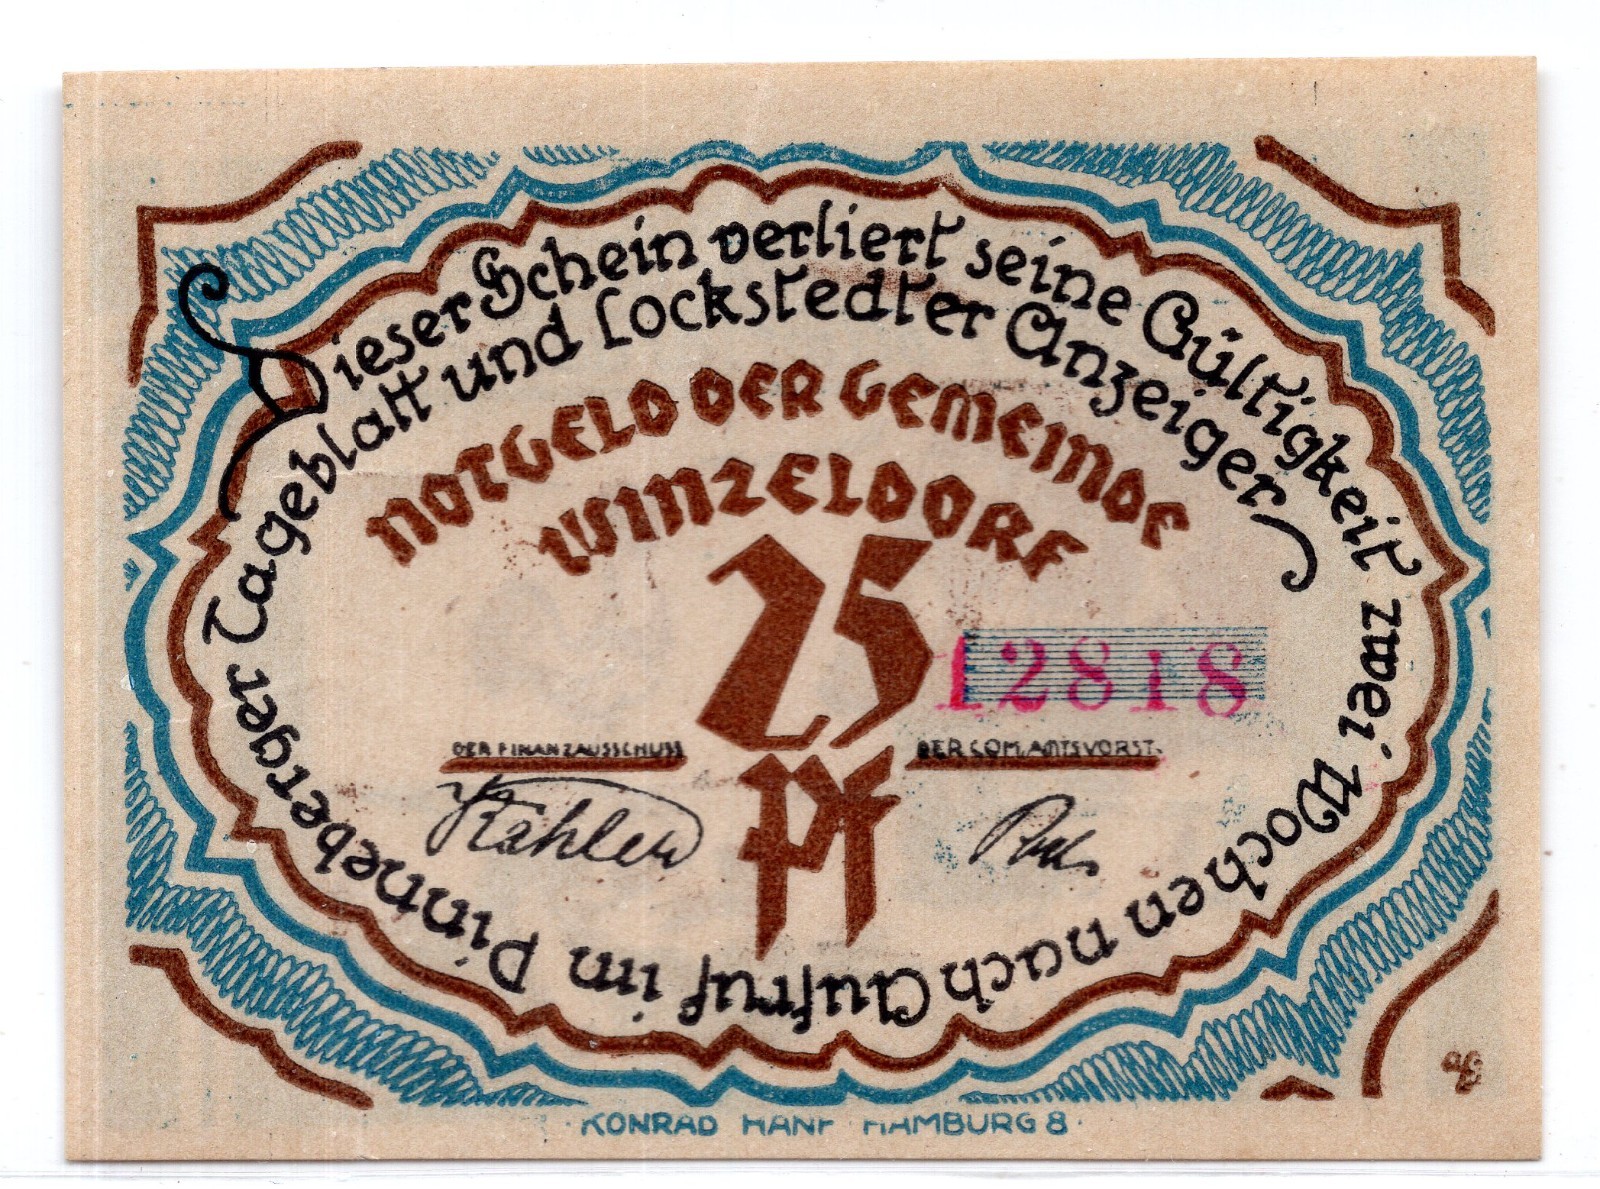 Dieser Schein verliert seine Gültigkeit zwei Wochen nach Aufruf im Pinneberger Tageblatt und Lockstedter Anzeiger
NOTGELD DER GEMEINDE
WINZELDORF
25
Pf
12818
DER FINANZAUSSCHUSS
DER COM. AMTSVORST.
KONRAD HANF HAMBURG 8